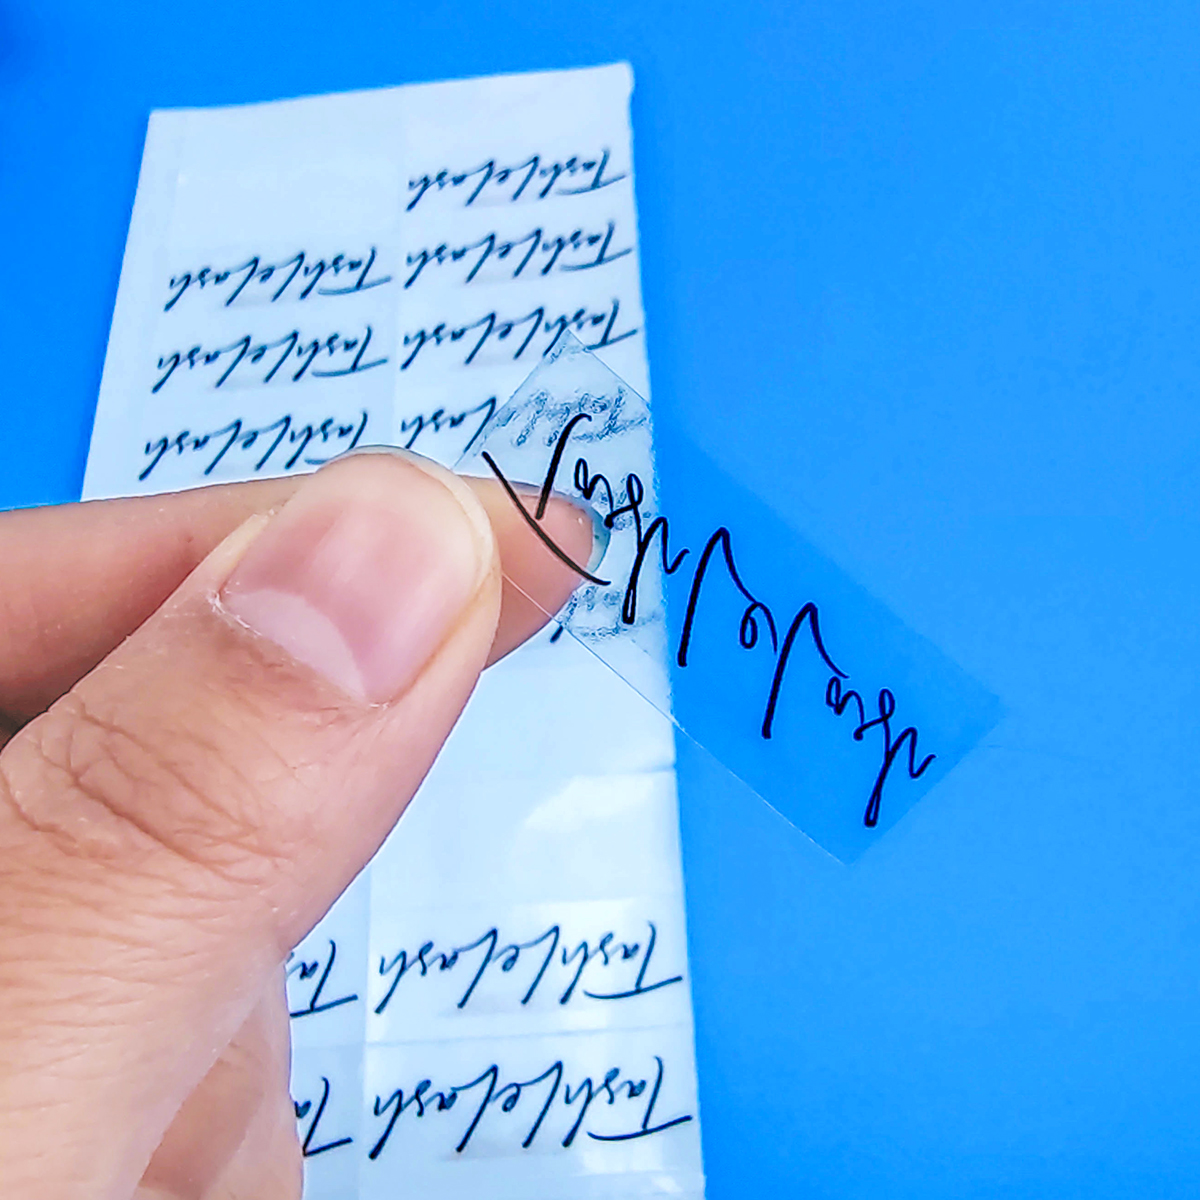 TashLeLash
TashLeLash TashLeLash
TashLeLash TashLeLash
TashLeLash Lash
TashLeLash
TashLeLash
TashLeLash